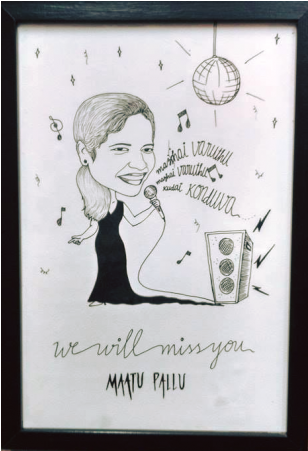 mazhai varuthu
mazhai varuthu
kudai konduva
we will miss you
MAATU PALLU